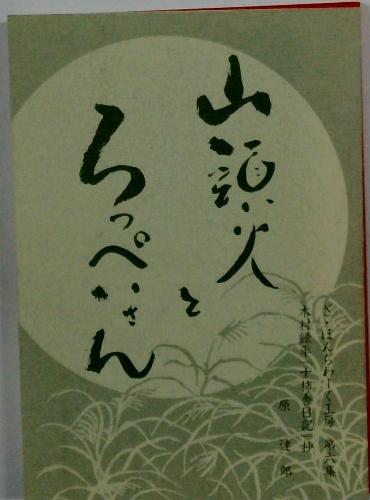 山頭火
と
ろっぺいさん
ざ・ぼんちわーく工房 第六集
木村緑平「十柿舎日記」抄
原 達郎